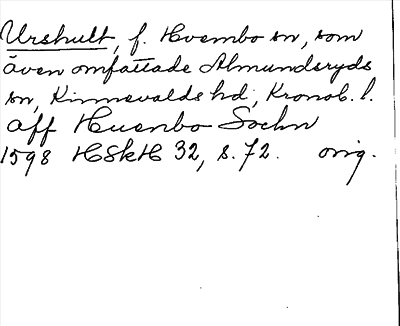 Urshult, f. Hvembo sn, som
även omfattade Almundsryds
sn, Kinnevalds hd, Kronob. l.
aff Huenbo Sochn
1598 HSkH 32, s. 72. orig.